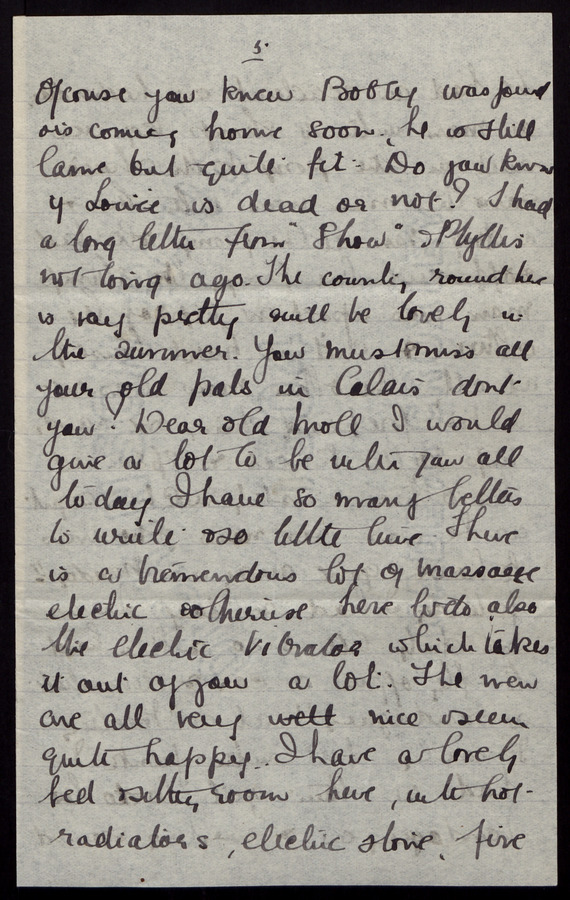 5.
Ofcourse you knew Bobby was found
& is coming home soon, he is still
lame but quite fit. Do you know
if Louie is dead or not? I had
a long letter from "Show" & Phyllis
not long ago. The country round here
is very pretty & will be lovely in
the summer. You must miss all
your old pals in Calais dont
you? Dear old Moll I would
give a lot to be with you all
today I have so many letters
to write & so little time. There
is a tremendous lot of massage
electric & otherwise here to do, also
the electric vibrator which takes
it out of you a lot. The men
are all very well nice & seem
quite happy. I have a lovely
bed sitting room here, with hot-
radiators, electric stove, fire